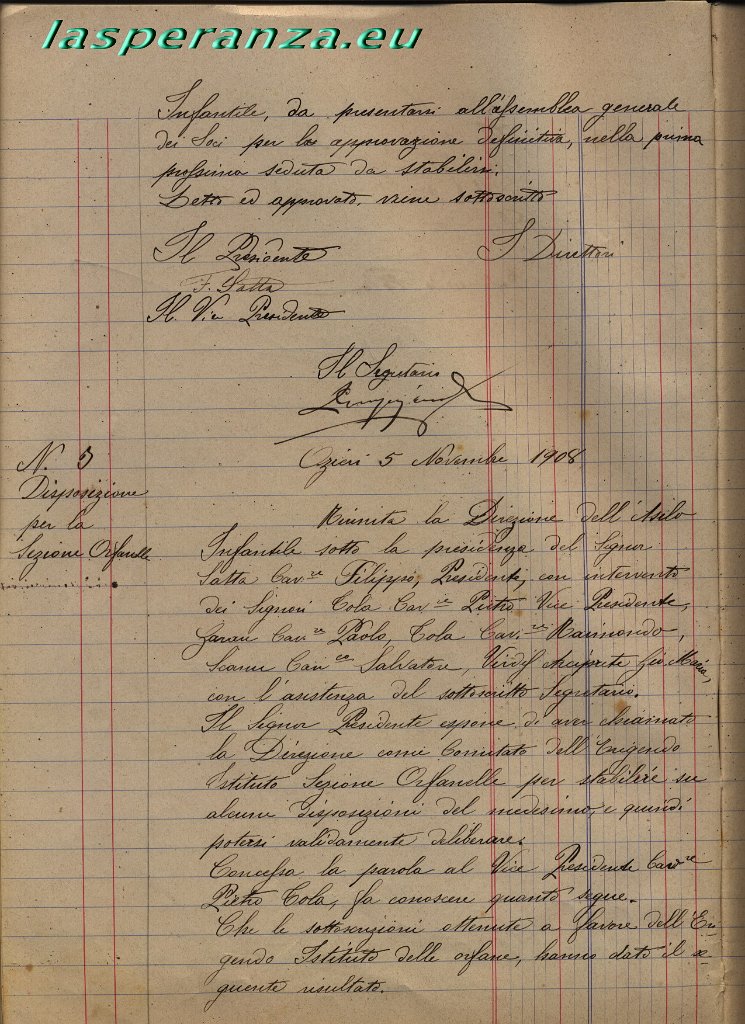 lasperanza.eu
Infantile, da presentarsi all'assemblea generale
dei Soci per la approvazione definitiva, nella prima
prossima seduta da stabilirsi.
Letto ed approvato, viene sottoscritto
Il Presidente I Direttori
F. Satta
Il Vice Presidente
Il Segretario
N. 5
Disposizione
per la
Sezione Orfanelle
Ozieri 5 Novembre 1908
Riunita la Direzione dell'Asilo
Infantile sotto la presidenza del Signor
Satta Cav.re Filippo, Presidente, con intervento
dei Signori Tola Cav.re Pietro Vice Presidente,
Cav.re Paolo, Tola Cav.re Raimondo,
Cav.re Salvatore, Arciprete Gio Maria,
con l'assistenza del sottoscritto Segretario.
Il Signor Presidente espone di aver chiamato
la Direzione come Comitato dell'Erigendo
Istituto Sezione Orfanelle per stabilire su
alcune disposizioni del medesimo, e quindi
potersi validamente deliberare.
Concessa la parola al Vice Presidente Cav.re
Pietro Tola, fa conoscere quanto segue.
Che le sottoscrizioni ottenute a favore dell'Eri=
gendo Istituto delle orfane, hanno dato il se=
guente risultato.